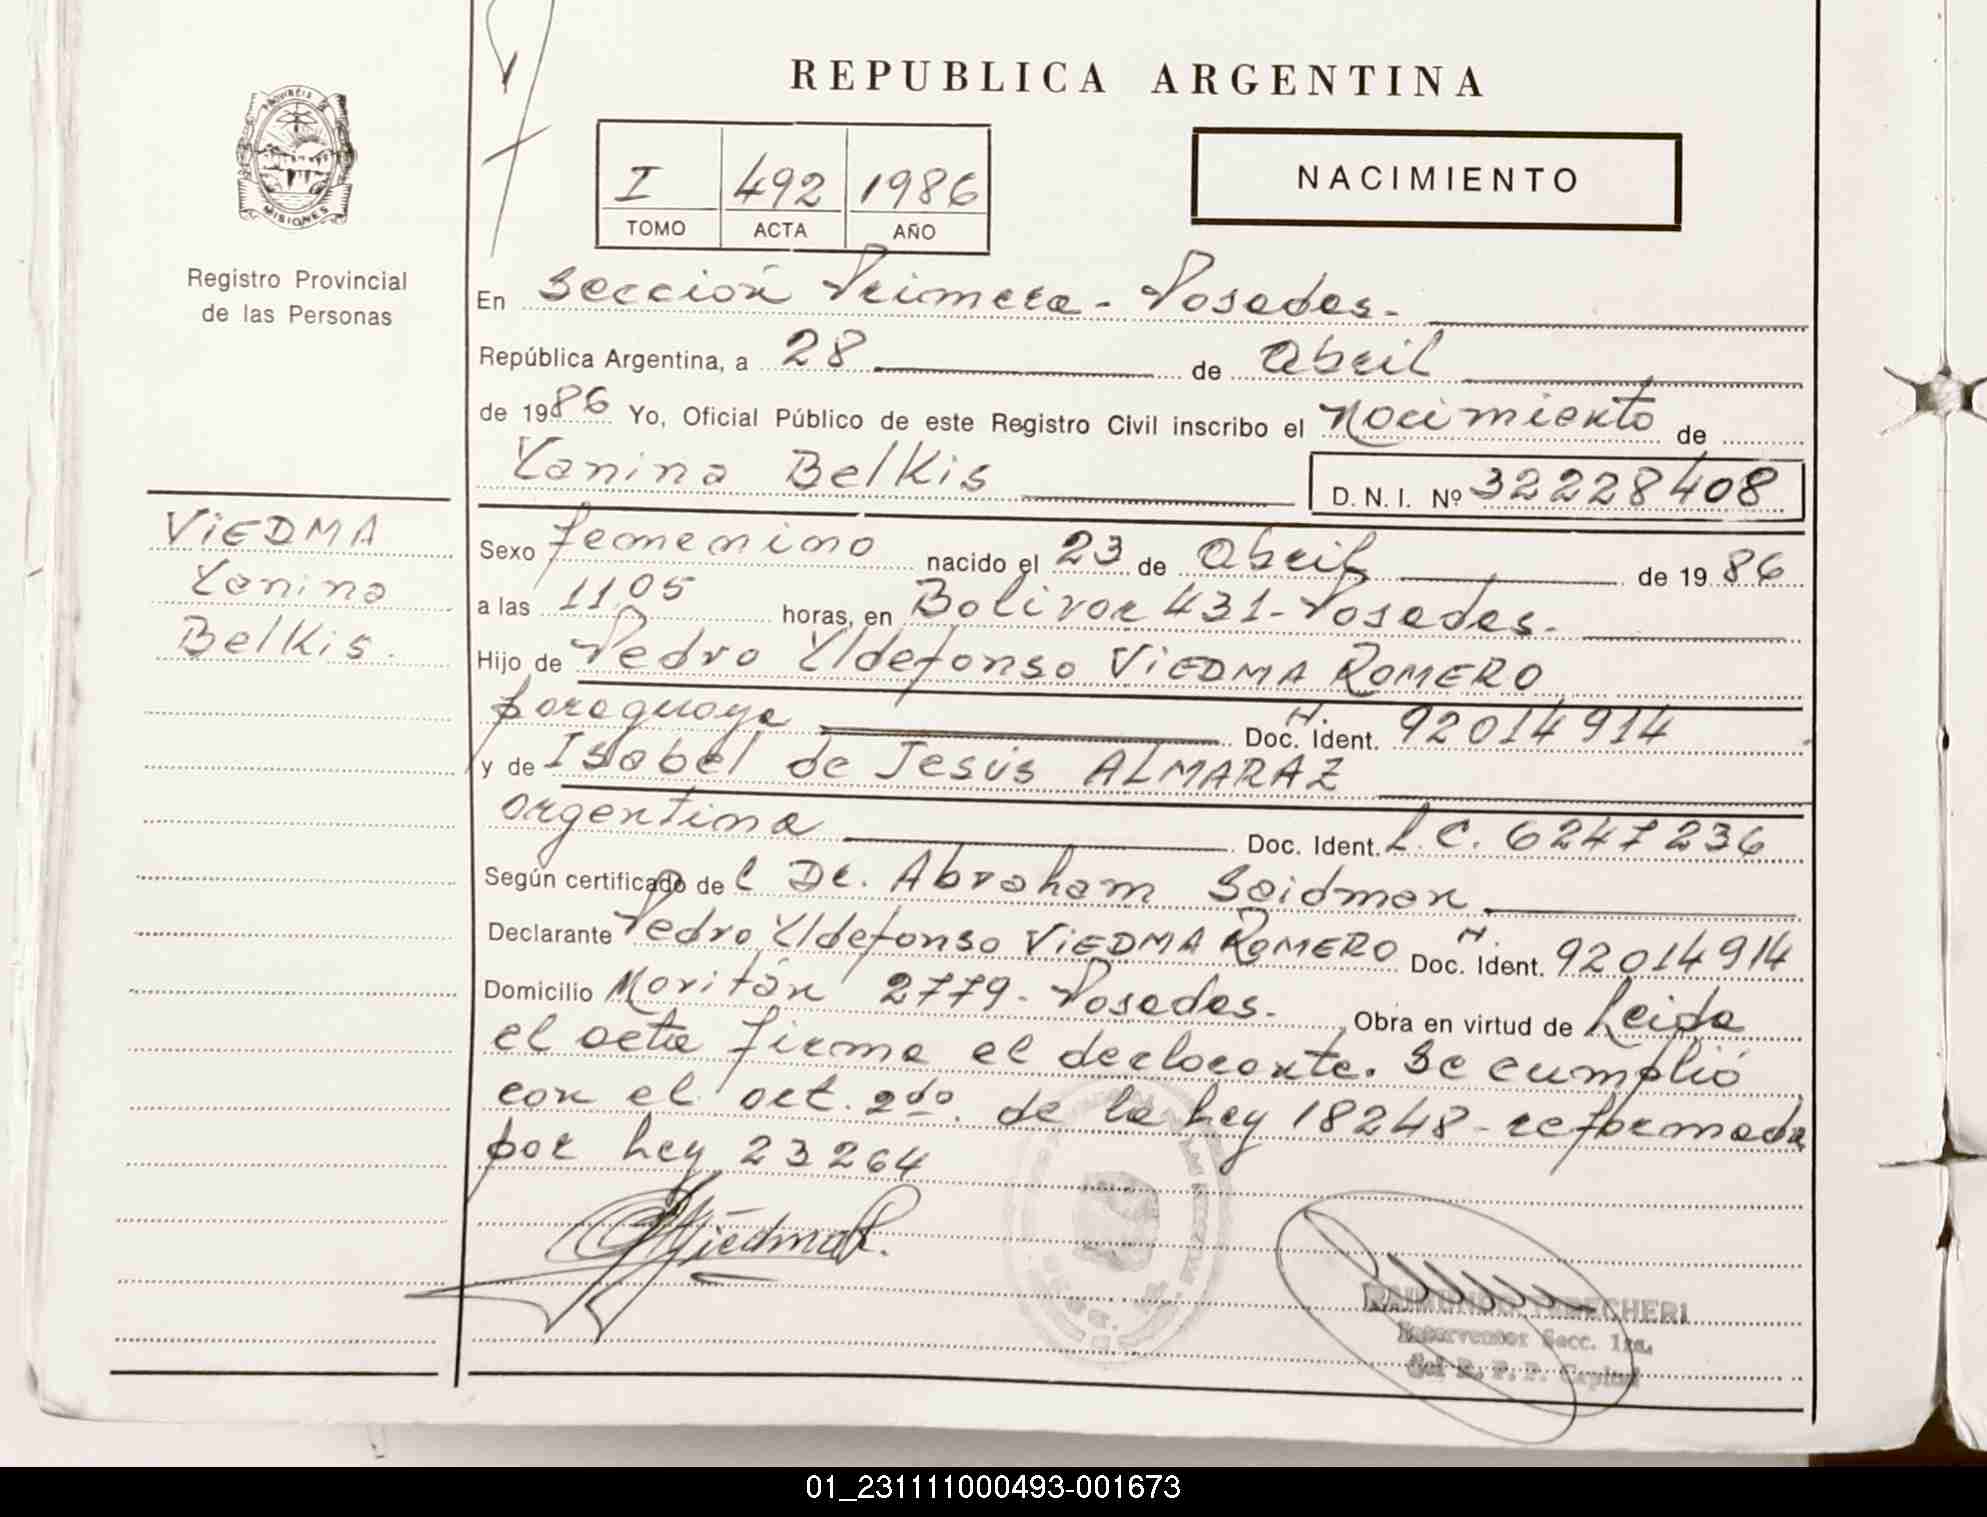 REPUBLICA ARGENTINA
NACIMIENTO
I 492 1986
TOMO ACTA AÑO
PROVINCIA DE
MISIONES
Registro Provincial
de las Personas
VIEDMA
Yanina
Belkis.
En Sección Primera - Posadas.
República Argentina, a 28 de abril
de 1986 Yo, Oficial Público de este Registro Civil inscribo el Nacimiento de
Yanina Belkis D. N. I. Nº 32228408
Sexo femenino nacido el 23 de abril de 1986
a las 11.05 horas, en Bolivar 431 - Posadas.
Hijo de Pedro Yldefonso VIEDMA ROMERO
paraguaya Doc. Ident. 92014914
y de Isabel de Jesús ALMARAZ
argentina Doc. Ident. L.C. 6247236
Según certificado del Dr. Abraham Saidman
Declarante Pedro Yldefonso VIEDMA ROMERO Doc. Ident. 92014914
Domicilio Moritán 2779 - Posadas. Obra en virtud de Leida
el acta firma el declarante. Se cumplió
con el art. 2do. de la Ley 18248 - reformada
por Ley 23264
Viedma R.
Interventor Secc. 1ra.
del R. P. P. Capital
01_231111000493-001673